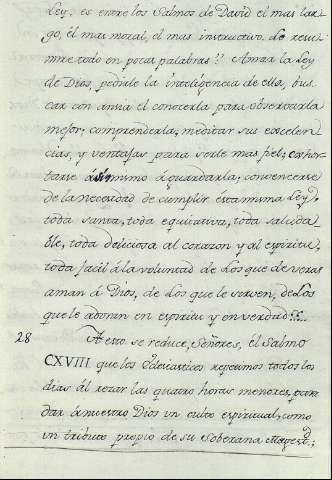 Ley: es entre los Salmos de David el mas lar-
go, el mas moral, el mas instructivo. Lo resu-
mire todo en pocas palabras? Amar la Ley
de Dios, pedirle la inteligencia de ella, bus
car con ansia el conocerla para observarla
mejor; comprenderla; meditar sus excelen-
cias, y ventajas para serle mas fiel; exhor-
tarse á sí mismo á guardarla; convencerse
de la necesidad de cumplir esta misma Ley,
toda santa, toda equitativa, toda saluda
ble, toda deliciosa al corazon y al espiritu,
toda facil á la voluntad de los que de veras
aman á Dios, de los que le sirven, de los
que le adoran en espiritu y en verdad.
28 A esto se reduce, Señores, el Salmo
CXVIII que los Eclesiasticos rezamos todos los
dias al rezar las quatro horas menores, para
dar á nuestro Dios un culto espiritual, como
un tributo propio de su Soberana Magesd;